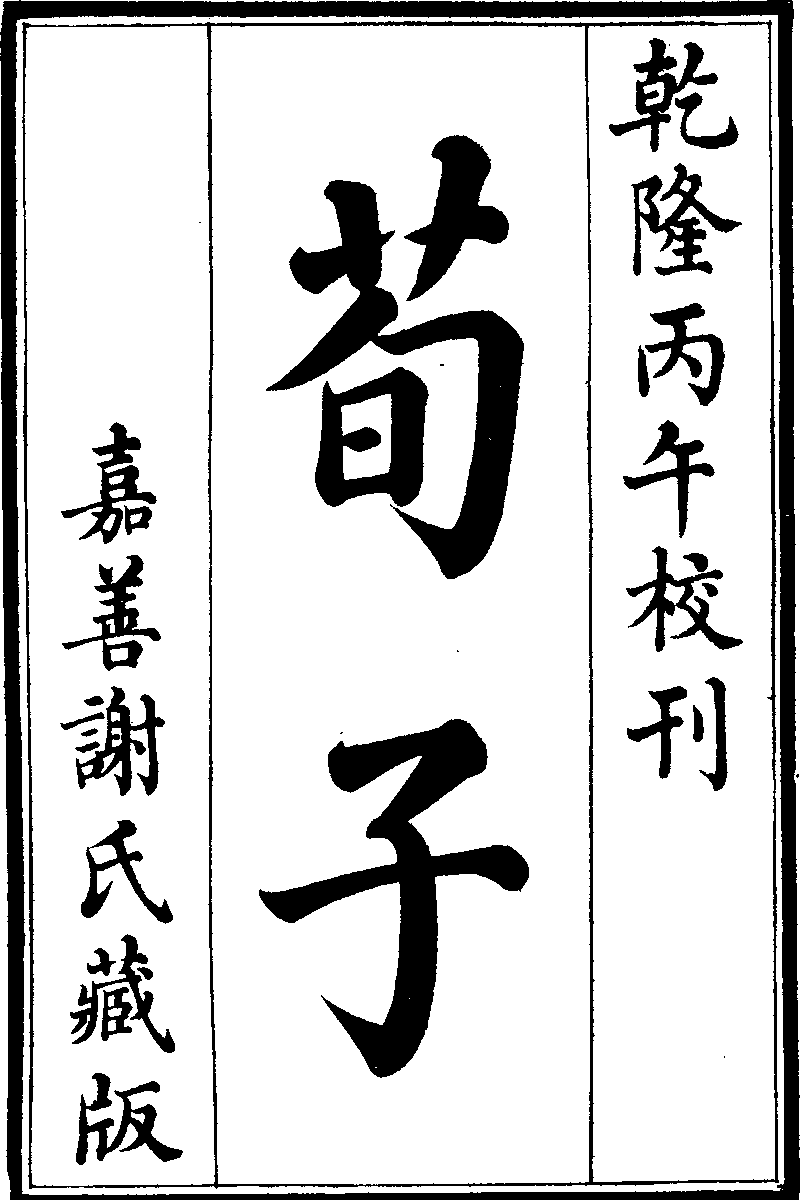 乾隆丙午校刊
荀子
嘉善謝氏藏版